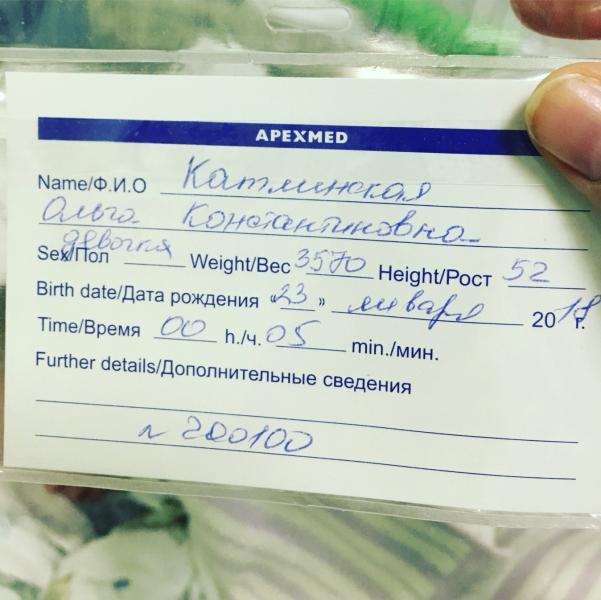 APEXMED
Name/Ф.И.О Катлинская
Ольга Константиновна
Sex/Пол девочка Weight/Вес 3570 Height/Рост 52
Birth date/Дата рождения «23» января 2018 г.
Time/Время 00 h./ч. 05 min./мин.
Further details/Дополнительные сведения
n 200100